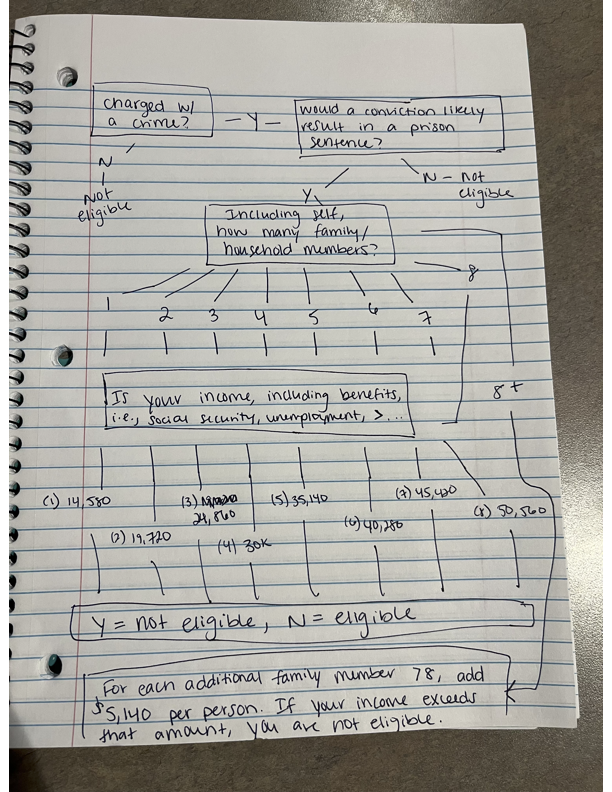 charged w/
a crime?
— Y —
would a conviction likely
result in a prison
sentence?
N
Not
eligible
Y
N — not
eligible
Including self,
how many family/
household members?
1 2 3 4 5 6 7 8
8+
Is your income, including benefits,
i.e., social security, unemployment, > ...
(1) 14,580
(2) 19,720
(3)
24,860
(4) 30K
(5) 35,140
(6) 40,280
(7) 45,420
(8) 50,560
Y = not eligible, N = eligible
For each additional family member 78, add
$5,140 per person. If your income exceeds
that amount, you are not eligible.